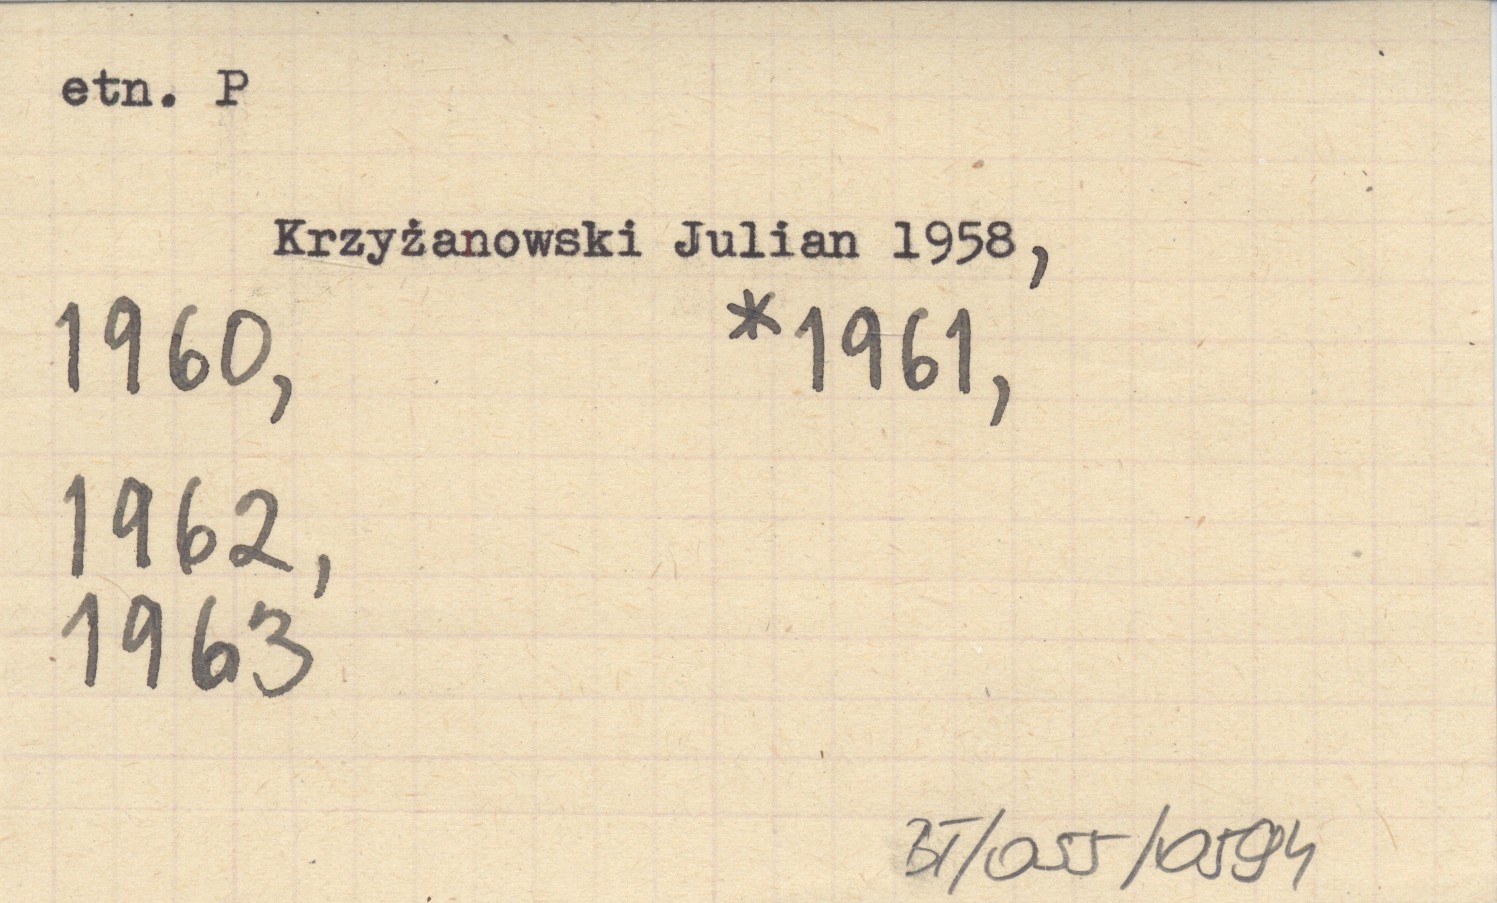 etn. P
Krzyżanowski Julian 1958,
1960, *1961,
1962,
1963
BT/055/0594